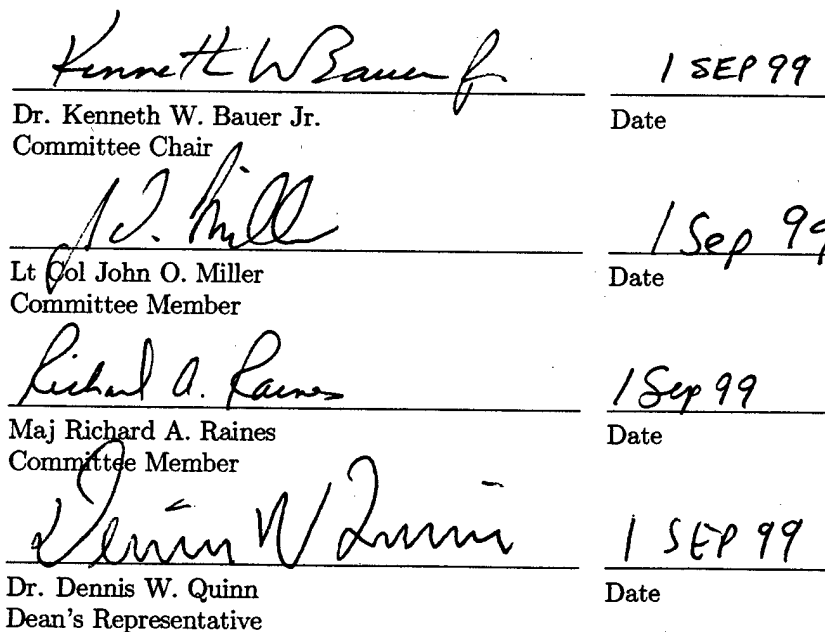 Kenneth W Bauer Jr 1 SEP 99
Dr. Kenneth W. Bauer Jr. Date
Committee Chair
J.O. Miller 1 Sep 99
Lt Col John O. Miller Date
Committee Member
Richard A. Raines 1 Sep 99
Maj Richard A. Raines Date
Committee Member
Dennis W Quinn 1 SEP 99
Dr. Dennis W. Quinn Date
Dean's Representative